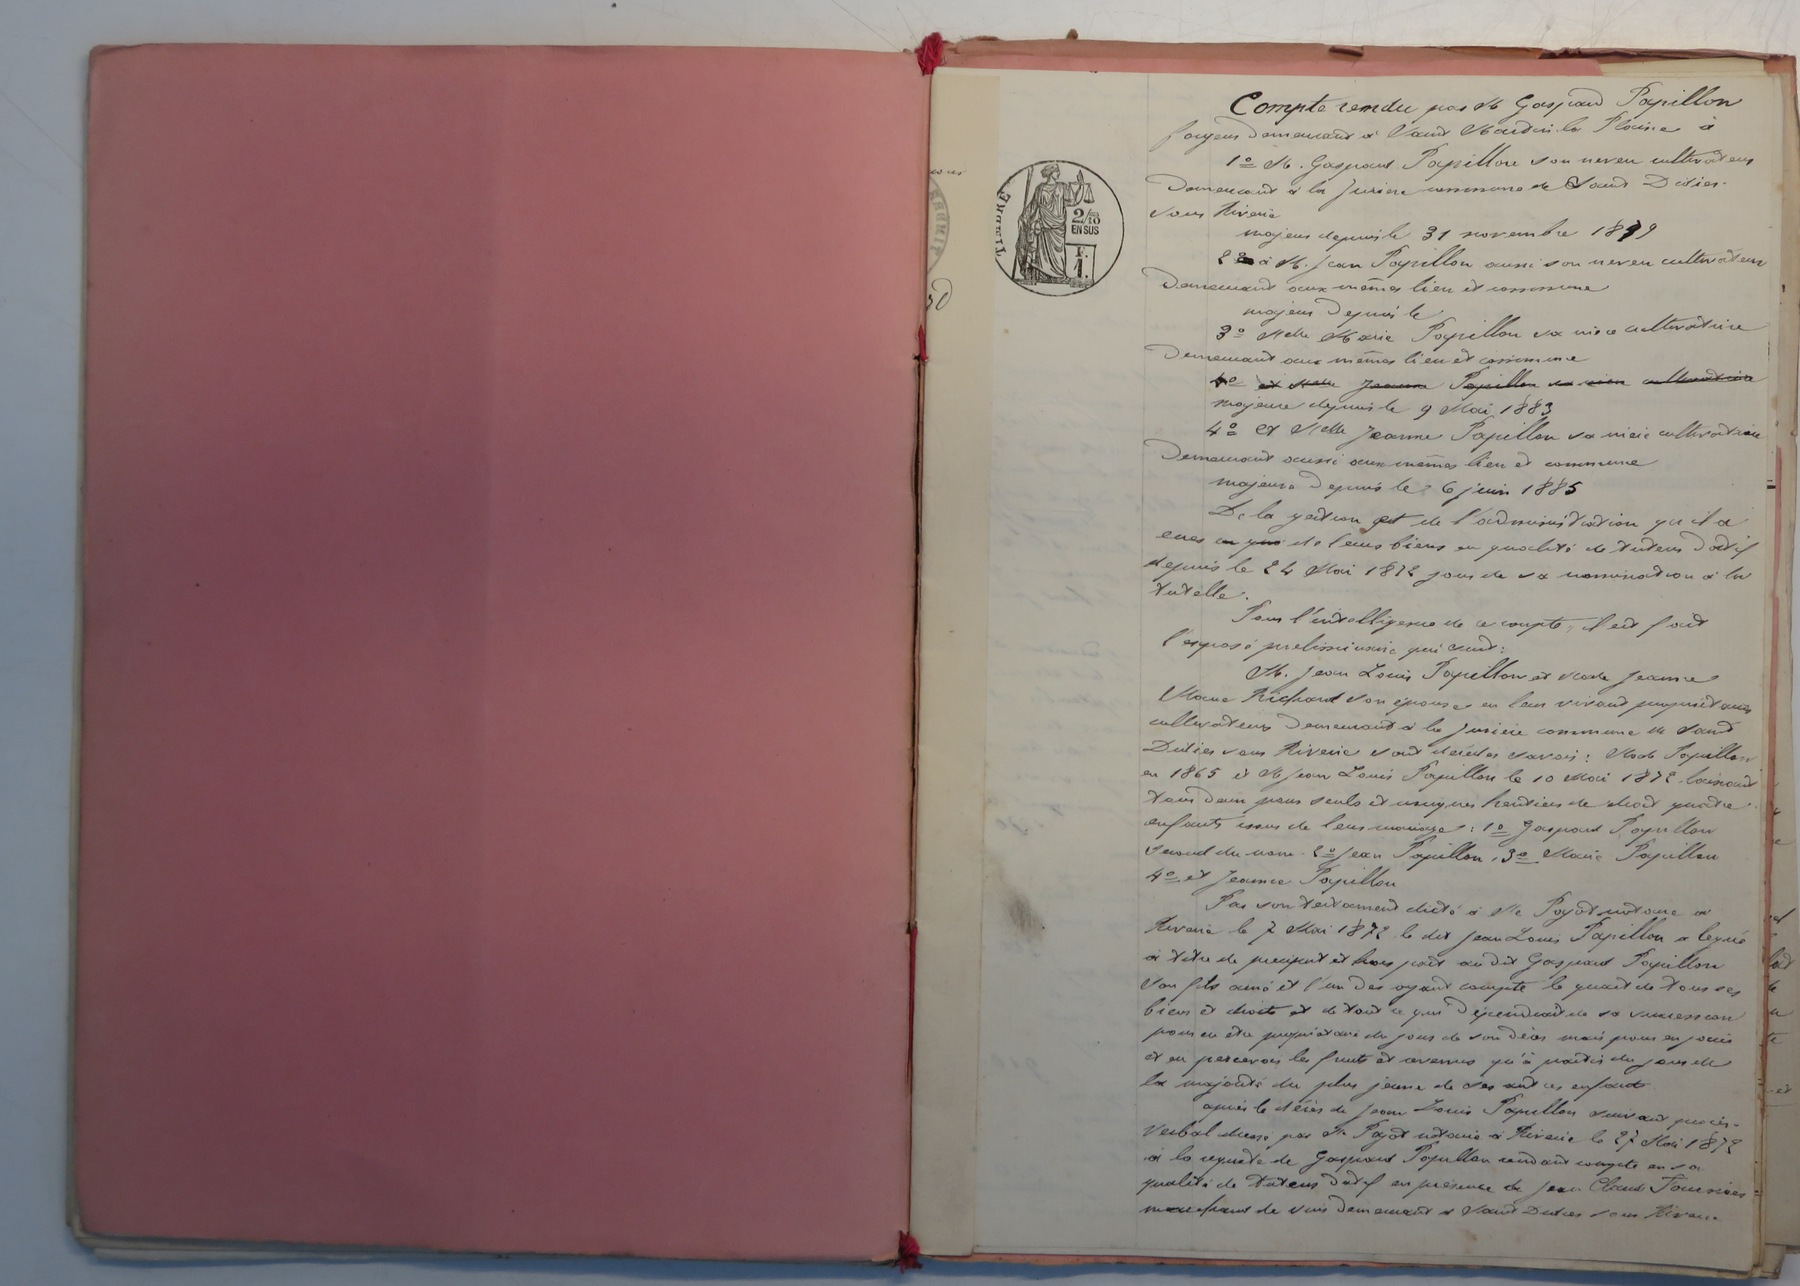 Compte rendu par M Gaspard Papillon
forgeur demeurant à Saint Martin la Plaine à
1º M. Gaspard Papillon son neveu cultivateur
demeurant à la Jurière commune de Saint Didier
sous Riverie
majeur depuis le 31 novembre 1879
2º à M. Jean Papillon aussi son neveu cultivateur
demeurant aux mêmes lieu et commune
majeur depuis le
3º Melle Marie Papillon sa nièce cultivatrice
demeurant aux mêmes lieu et commune
4º et Melle Jeanne Papillon sa nièce cultivatrice
majeure depuis le 9 Mai 1883
4º et Melle Jeanne Papillon sa nièce cultivatrice
demeurant aussi aux mêmes lieu et commune
majeure depuis le 6 juin 1885
De la gestion et de l'administration qu'il a
eues de leurs biens en qualité de tuteur datif
depuis le 24 Mai 1872 jour de sa nomination à la
tutelle.
Pour l'intelligence de ce compte, il est fait
l'exposé préliminaire qui suit:
M. Jean Louis Papillon et Made Jeanne
Marie Richard son épouse en leur vivant propriétaires
cultivateurs demeurant à la Jurière commune de Saint
Didier sous Riverie sont décédés savoir: Made Papillon
en 1865 et M Jean Louis Papillon le 10 Mai 1872 laissant
tous deux pour seuls et uniques héritiers de droit quatre
enfants issus de leur mariage: 1º Gaspard Papillon
second du nom. 2º Jean Papillon, 3º Marie Papillon
4º et Jeanne Papillon
Par son testament dicté à Me notaire à
Riverie le 7 Mai 1872 le dit Jean Louis Papillon a légué
à titre de preciput et hors part au dit Gaspard Papillon
son fils ainé et l'un des oyant compte le quart de tous ses
biens et droits et de tout ce qui dépendrait de sa succession
pour en être propriétaire du jour de son décès mais pour en jouir
et en percevoir les fruits et revenus qu'à partir du jour de
la majorité du plus jeune de ses autres enfants
après le décès de Jean Louis Papillon suivant procès-
verbal dressé par Me notaire à Riverie le 27 Mai 1872
à la requête de Gaspard Papillon rendant compte en sa
qualité de tuteur datif en présence de Jean Claude Fournier
marchand de vins demeurant à Saint Didier sous Riverie
TIMBRE
2/10
EN SUS
F.
1.